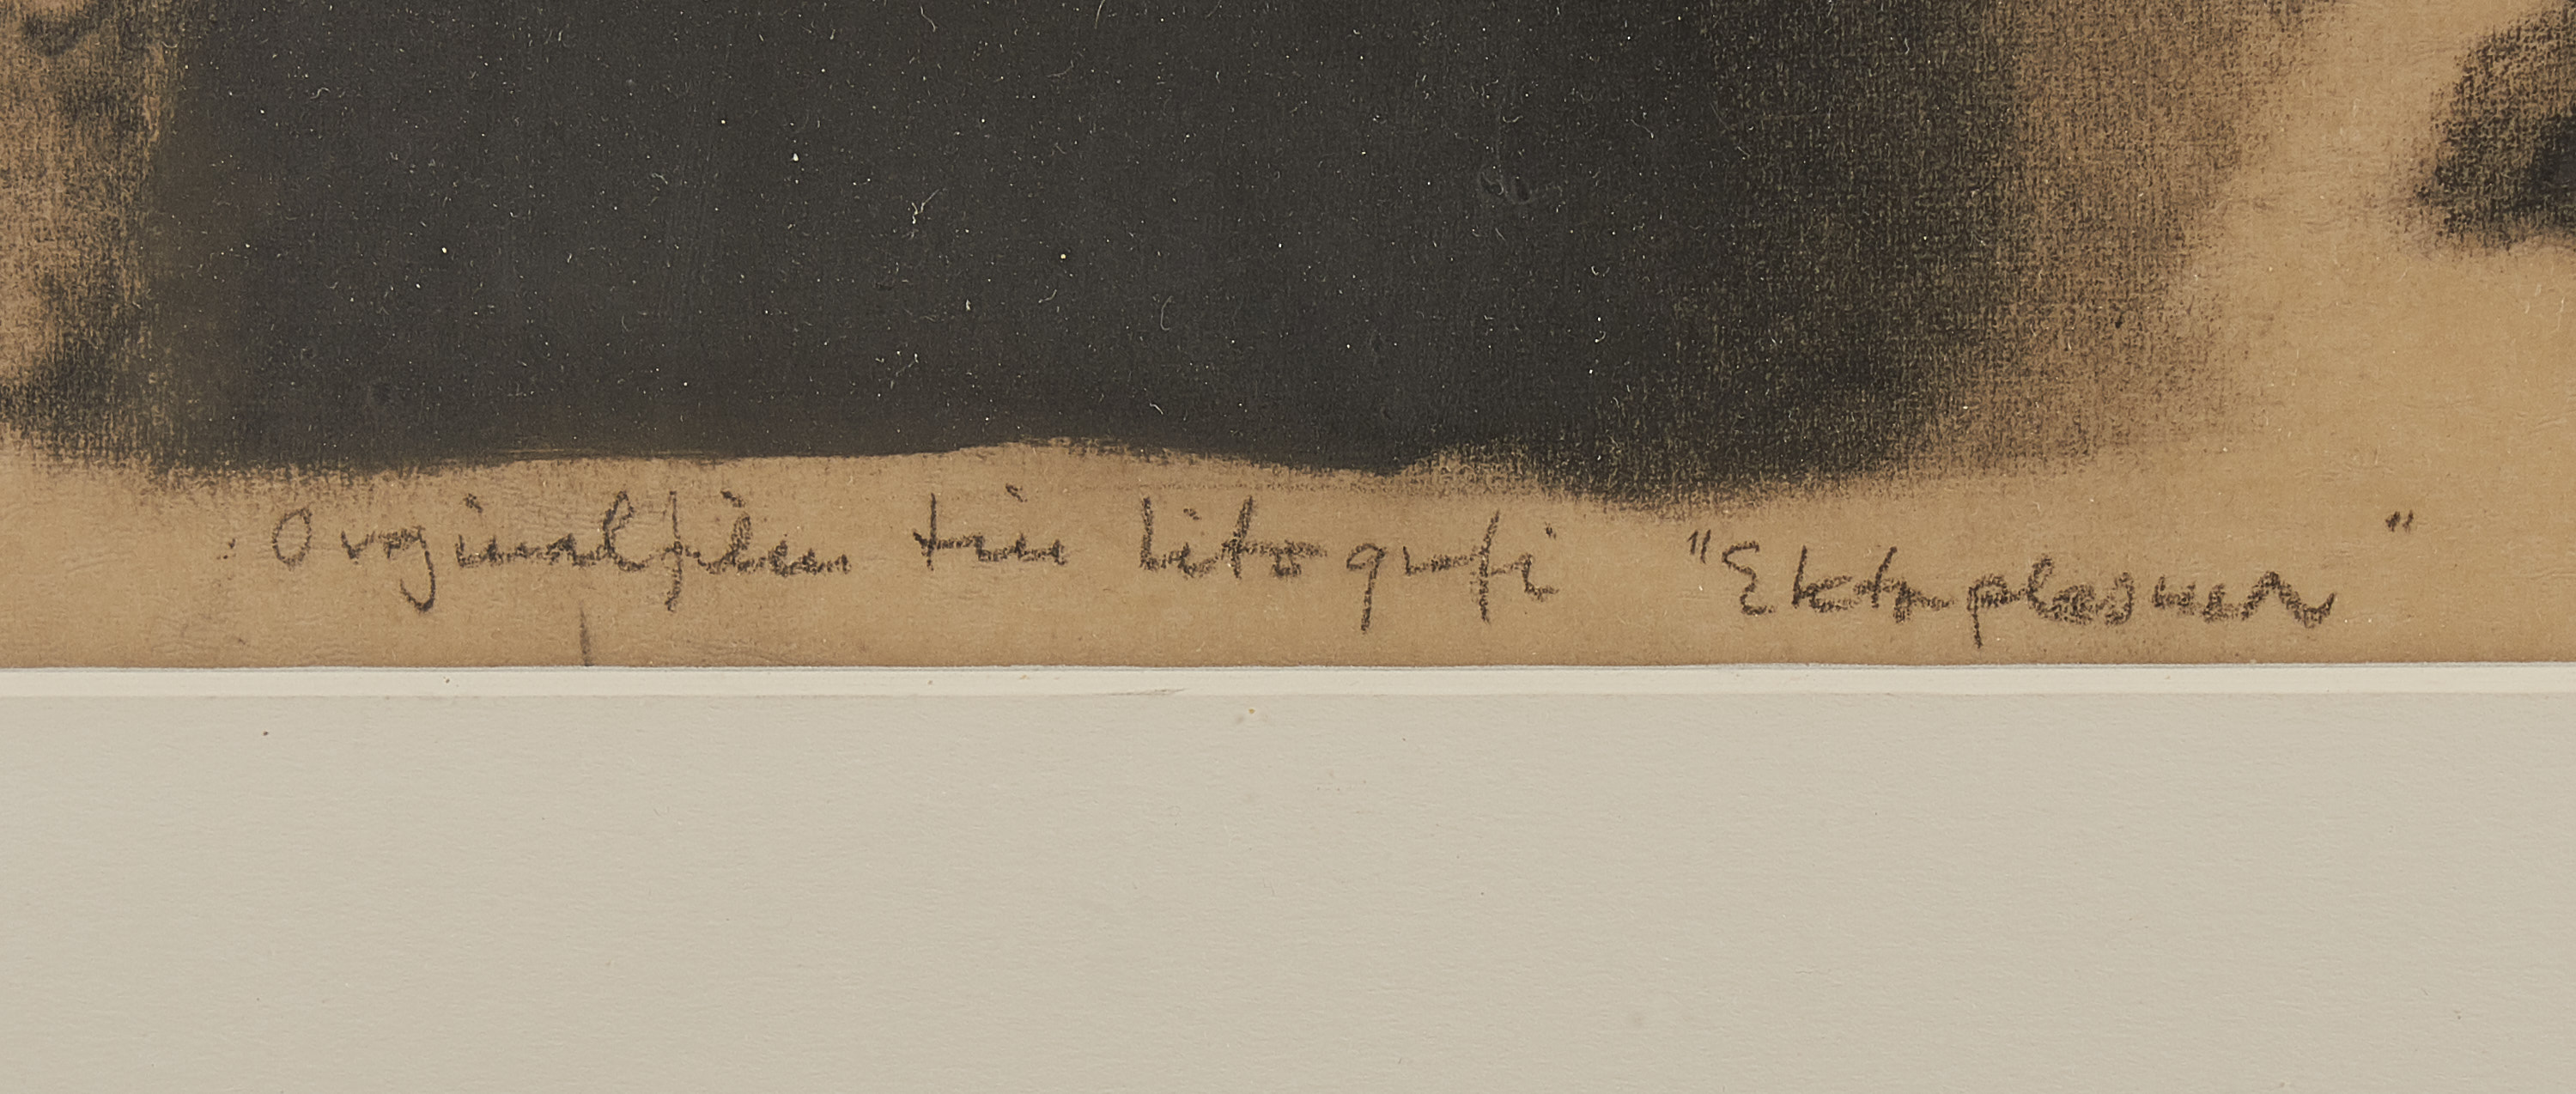 Orginalfilm till litografi "Ektoplasmer"